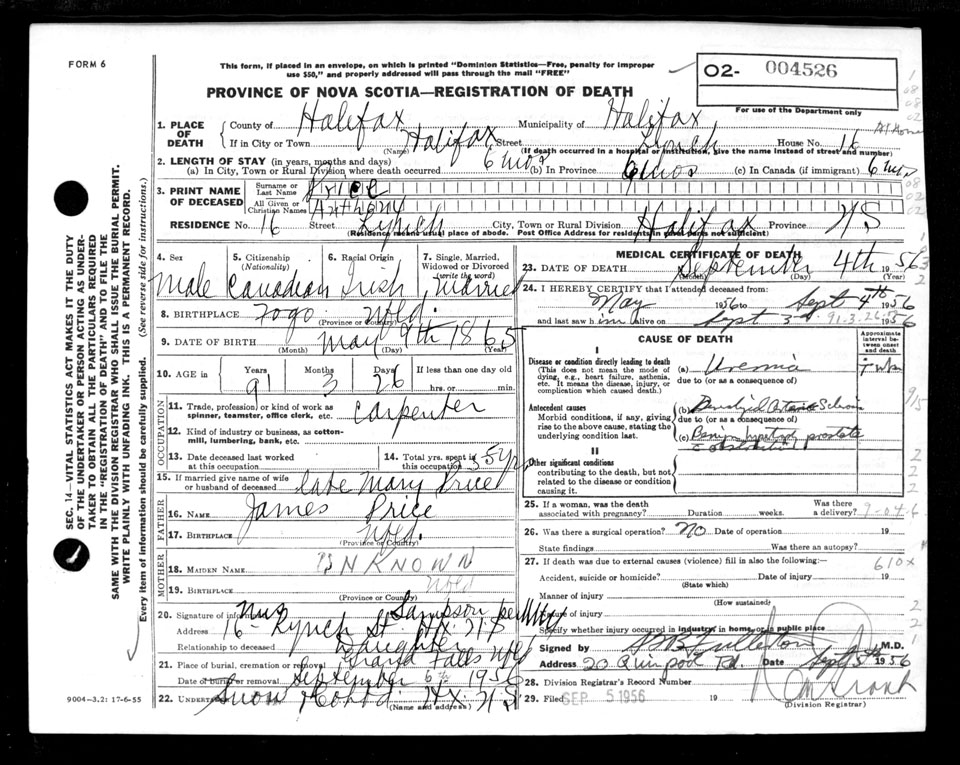 FORM 6
This form, if placed in an envelope, on which is printed "Dominion Statistics—Free, penalty for improper
use $50," and properly addressed will pass through the mail "FREE"
02- 004526
For use of the Department only
PROVINCE OF NOVA SCOTIA—REGISTRATION OF DEATH
1. PLACE OF DEATH
County of Halifax Municipality of Halifax
If in City or Town Halifax Street Lynch House No. 16
(Name) (If death occurred in a hospital or institution, give the name instead of street and number)
2. LENGTH OF STAY (in years, months and days)
(a) In City, Town or Rural Division where death occurred 6 mos (b) In Province 6 mos (c) In Canada (if immigrant) 6 mos
3. PRINT NAME OF DECEASED
Surname or Last Name Price
All Given or Christian Names Anthony
RESIDENCE No. 16 Street Lynch City, Town or Rural Division Halifax Province NS
(Residence means usual place of abode. Post Office Address for residents in rural parts not sufficient)
4. Sex Male
5. Citizenship (Nationality) Canadian
6. Racial Origin Irish
7. Single, Married, Widowed or Divorced (write the word) Married
8. BIRTHPLACE Fogo Nfld.
(Province or Country)
9. DATE OF BIRTH May 9th 1865
(Month) (Day) (Year)
10. AGE in Years 91 Months 3 Days 26 If less than one day old
hrs. or min.
OCCUPATION
11. Trade, profession or kind of work as spinner, teamster, office clerk, etc. Carpenter
12. Kind of industry or business, as cotton-mill, lumbering, bank, etc.
13. Date deceased last worked at this occupation
14. Total yrs. spent in this occupation 35 yrs
15. If married give name of wife or husband of deceased late Mary Price
FATHER
16. NAME James Price
17. BIRTHPLACE Nfld.
(Province or Country)
MOTHER
18. MAIDEN NAME UNKNOWN
19. BIRTHPLACE Nfld
(Province or Country)
20. Signature of informant Mrs Sampson
Address 16 Lynch St. Hfx. N S
Relationship to deceased Daughter
21. Place of burial, cremation or removal Grand Falls Nfld
Date of burial or removal September 6th 1956
22. UNDERTAKER Snow Hfx. N S
(Name and address)
MEDICAL CERTIFICATE OF DEATH
23. DATE OF DEATH September 4th 1956
(Month) (Day) (Year)
24. I HEREBY CERTIFY that I attended deceased from
May 1956 to Sept 4th 1956
and last saw him alive on Sept 3 1956
91-3-26
CAUSE OF DEATH
Approximate interval between onset and death
I
Disease or condition directly leading to death
(This does not mean the mode of dying, e.g., heart failure, asthenia, etc. It means the disease, injury, or complication which caused death.)
(a) Uremia
due to (or as a consequence of)
Antecedent causes
Morbid conditions, if any, giving rise to the above cause, stating the underlying condition last.
(b)
due to (or as a consequence of)
(c) prostate
II
Other significant conditions
contributing to the death, but not related to the disease or condition causing it.
25. If a woman, was the death associated with pregnancy? Duration weeks. Was there a delivery?
26. Was there a surgical operation? No Date of operation 19
State findings Was there an autopsy?
27. If death was due to external causes (violence) fill in also the following:—
610x
Accident, suicide or homicide? Date of injury 19
(State which)
Manner of injury
(How sustained)
Nature of injury
Specify whether injury occurred in industry, in home, or in public place
Signed by Fullerton M.D.
Address 20 Quinpool Rd. Date Sept 5th 1956
28. Division Registrar's Record Number
29. Filed SEP 5 1956 19
(Division Registrar)
9004—3.2: 17-6-55
SEC. 14—VITAL STATISTICS ACT MAKES IT THE DUTY
OF THE UNDERTAKER OR PERSON ACTING AS UNDER-
TAKER TO OBTAIN ALL THE PARTICULARS REQUIRED
IN THE "REGISTRATION OF DEATH" AND TO FILE THE
SAME WITH THE DIVISION REGISTRAR WHO SHALL ISSUE THE BURIAL PERMIT.
WRITE PLAINLY WITH UNFADING INK. THIS IS A PERMANENT RECORD.
Every item of information should be carefully supplied. (See reverse side for instructions.)